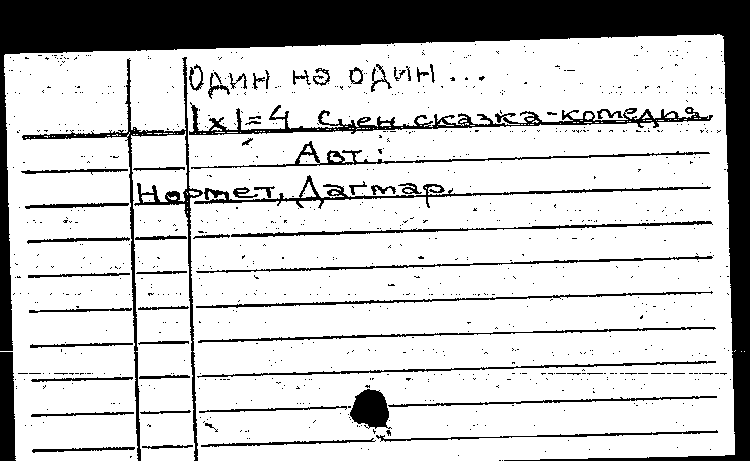 Один на один...
|x|=4 Сцен. сказка-комедия.
Авт.:
Нормет, Дагмар.